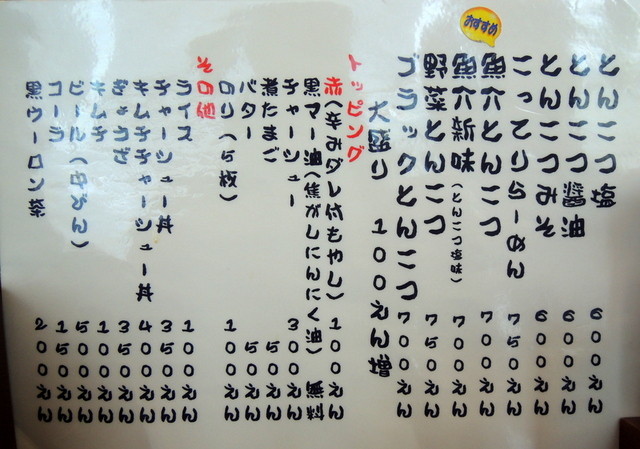 とんこつ塩 600えん
とんこつ醤油 600えん
とんこつみそ 600えん
こってりらーめん 750えん
おすすめ
魚介とんこつ 700えん
魚介新味(とんこつ塩味) 700えん
野菜とんこつ 750えん
ブラックとんこつ 700えん
大盛り 100えん増
トッピング
赤(辛みダレ付もやし) 100えん
黒マー油(焦がしにんにく油) 無料
チャーシュー 300えん
煮たまご 50えん
バター 50えん
のり(5枚) 100えん
その他
ライス 100えん
チャーシュー丼 350えん
キムチチャーシュー丼 400えん
ぎょうざ 350えん
キムチ 100えん
ビール(中びん) 500えん
コーラ 150えん
黒ウーロン茶 200えん